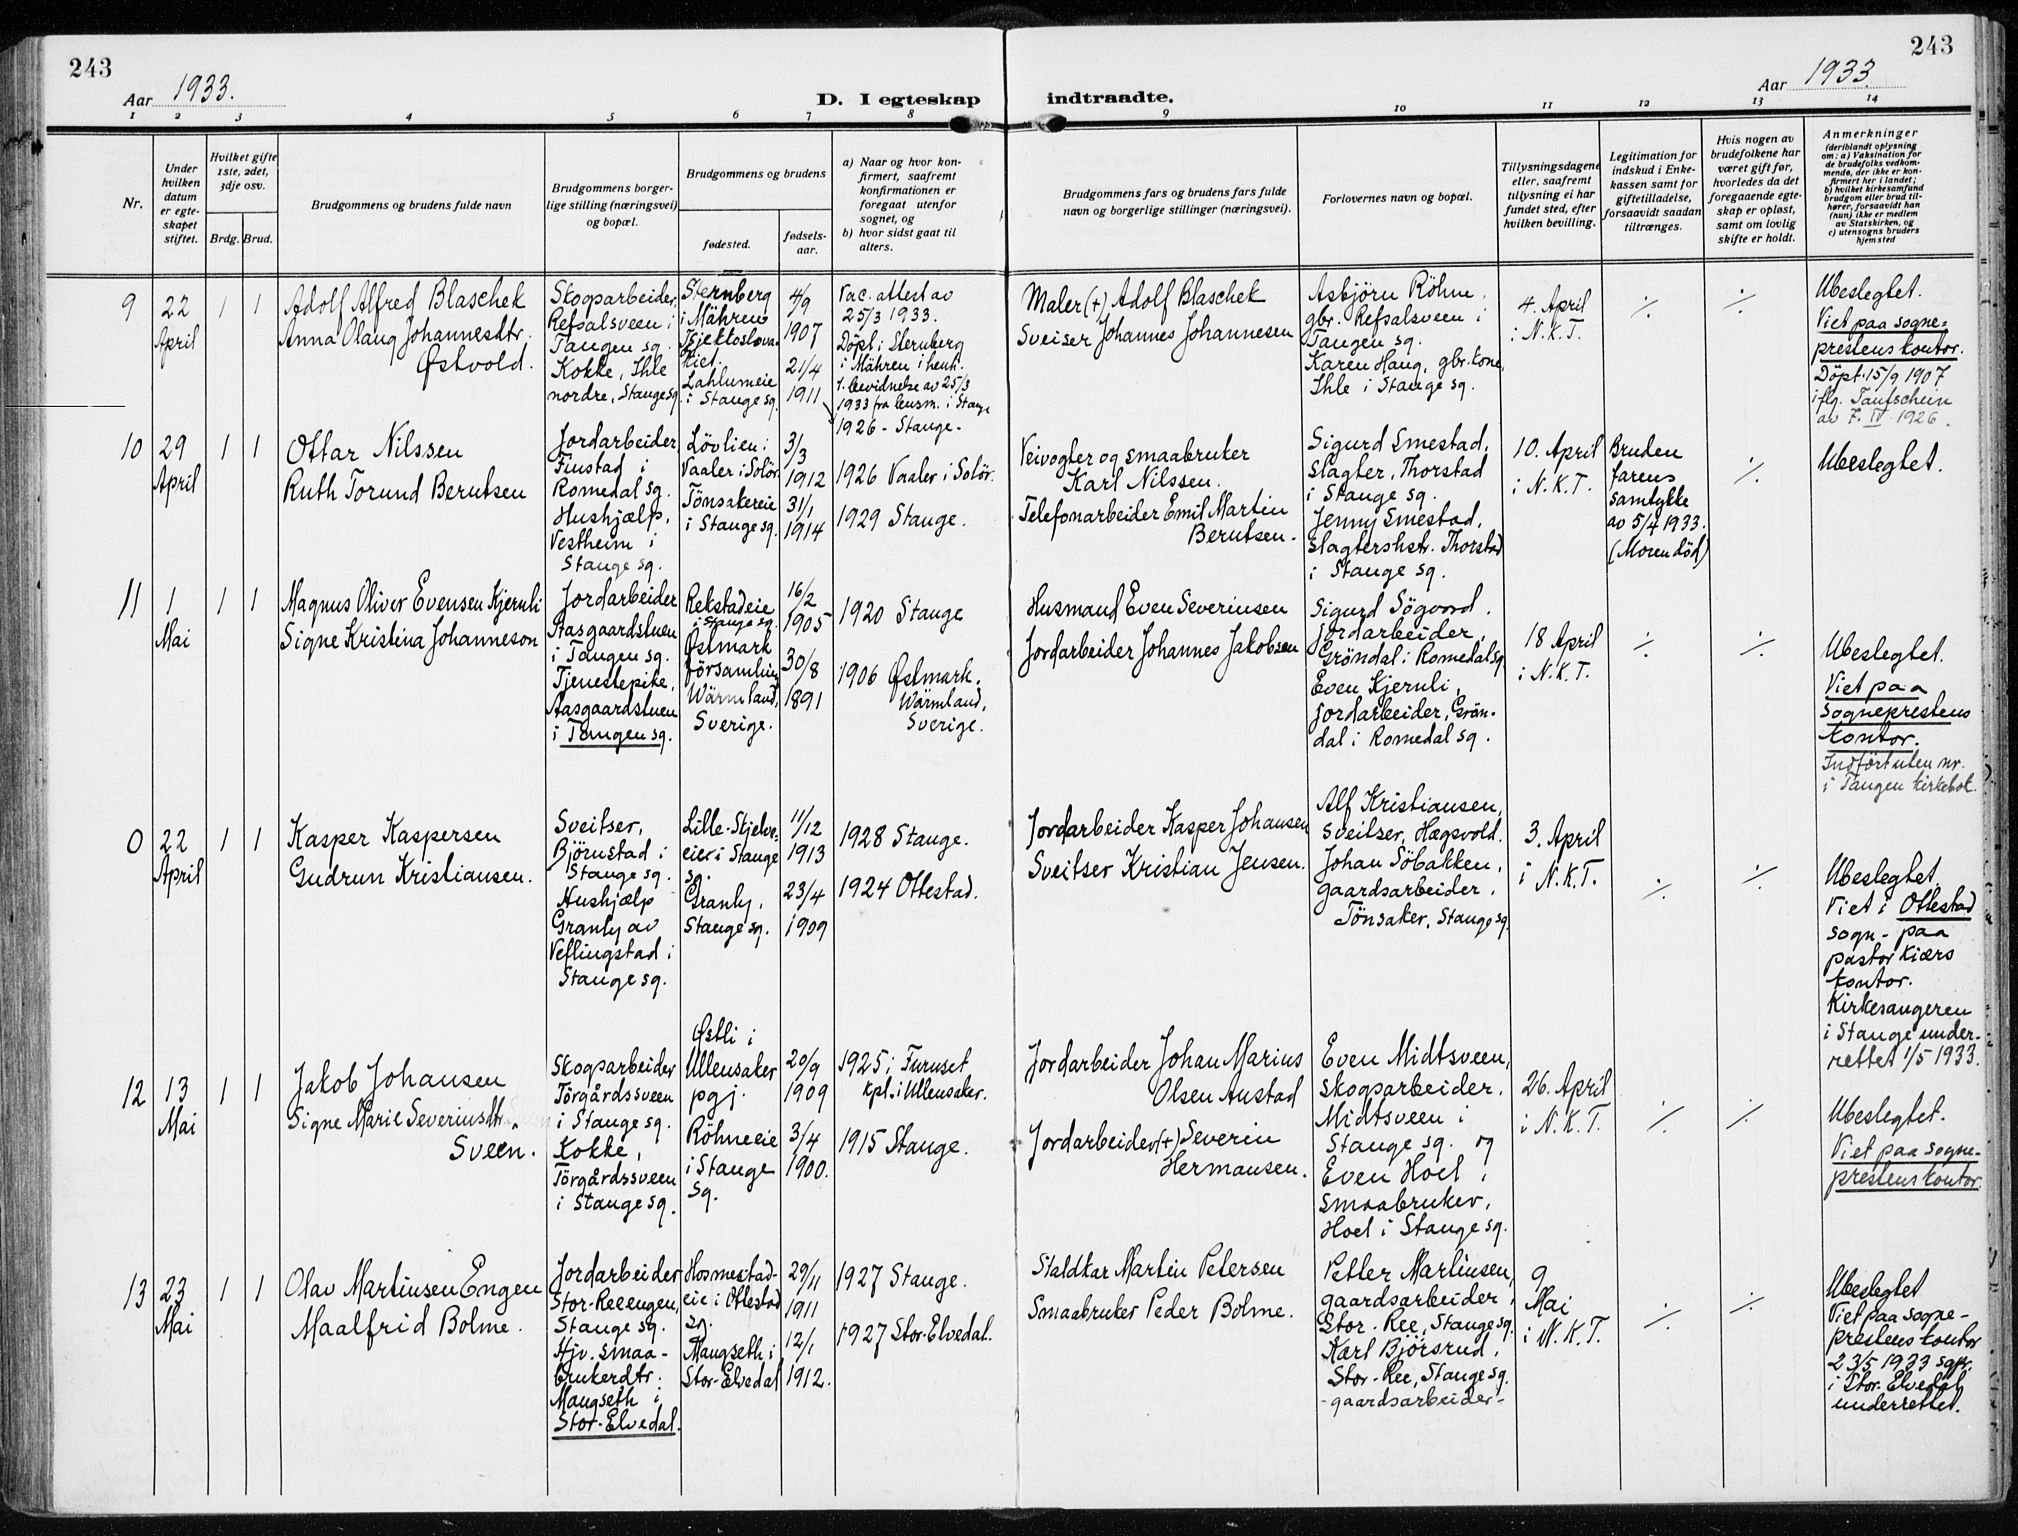 243
Aar 1933.
D. I egteskap
indtraadte.
Aar 1933.
243
1 2 3 4 5 6 7 8 9 10 11 12 13 14
Nr.
Under
hvilken
datum
er egte-
skapet
stiftet.
Hvilket gifte
1ste, 2det,
3dje osv.
Brdg. Brud.
Brudgommens og brudens fulde navn
Brudgommens borger-
lige stilling (næringsvei)
og bopæl.
Brudgommens og brudens
fødested.
fødsels-
aar.
a) Naar og hvor kon-
firmert, saafremt
konfirmationen er
foregaat utenfor
sognet, og
b) hvor sidst gaat til
alters.
Brudgommens fars og brudens fars fulde
navn og borgerlige stillinger (næringsvei).
Forlovernes navn og bopæl.
Tillysningsdagene
eller, saafremt
tillysning ei har
fundet sted, efter
hvilken bevilling.
Legitimation for
indskud i Enke-
kassen samt for
giftetilladelse,
forsaavidt saadan
tiltrænges.
Hvis nogen av
brudefolkene har
været gift før,
hvorledes da det
foregaaende egte-
skap er opløst,
samt om lovlig
skifte er holdt.
Anmerkninger
(deriblandt oplysning
om: a) Vaksination for
de brudefolks vedkom-
mende, der ikke er kon-
firmert her i landet;
b) hvilket kirkesamfund
brudgom eller brud til-
hører, forsaavidt han
(hun) ikke er medlem
av Statskirken, og
c) utensogns bruders
hjemsted
9
22
April
1 1
Adolf Alfred Blaschek
Anna Olaug Johannesdtr.
Østvold.
Skogsarbeider,
Refsalsveen i
Tangen sg.
Kokke, Ihle
nordre, Stange sg.
Sternberg
i Mähren
Tjekkoslova-
kiet.
Lahlumeie
i Stange sg.
4/9
1907
21/4
1911
Vac. attest av
25/3 1933.
Döpt i Sternberg
i Mähren i henh.
t. bevidnelse av 25/3
1933 fra lensm. i Stange
1926 - Stange -
Maler (+) Adolf Blaschek
Sveiser Johannes Johannesen
Asbjörn Röhne,
gbr. Refsalsveen i
Tangen sg.
Karen Haug, gbr. kone,
Ihle i Stange sg.
4. April
i N.K.T.
./.
./.
Ubeslegtet.
Viet paa sogne-
prestens kontor.
Döpt 15/9 1907
iflg. Taufschein
av 7. IV. 1926.
10
29
April
1 1
Ottar Nilssen
Ruth Torund Berntsen
Jordarbeider,
Finstad i
Romedal sg.
Hushjælp,
Vestheim i
Stange sg.
Lövlien i
Vaaler i Solör.
Tönsakereie
i Stange sg.
3/3
1912
31/1
1914
1926 Vaaler i Solör.
1929 Stange.
Veivogter og smaabruker
Karl Nilssen.
Telefonarbeider Emil Martin
Berntsen.
Sigurd Smestad,
slagter, Thorstad
i Stange sg.
Jenny Smestad,
slagtershstr. Thorstad
i Stange sg.
10. April
i N.K.T.
Bruden
farens
samtykke
av 5/4 1933.
(Moren död)
./.
Ubeslegtet.
11
1
Mai
1 1
Magnus Oliver Evensen Kjernli
Signe Kristina Johanneson
Jordarbeider
Aasgaardstuen
i Tangen sg.
Tjenestepike,
Aasgaardstuen
i Tangen sg.
Rekstadeie
i Stange sg.
Östmark
församling
Wärmland,
Sverige.
16/2
1905
30/8
1891
1920 Stange
1906 Östmark,
Wärmland,
Sverige.
Husmand Even Severinsen
Jordarbeider Johannes Jakobsen
Sigurd Sögvord.
jordarbeider,
Gröndal i Romedal sg.
Even Kjernli,
jordarbeider, Grön-
dal i Romedal sg.
18 April
i N.K.T.
./.
./.
Ubeslegtet.
Viet paa
sogneprestens
kontor.
Indfört uten nr.
i Tangen kirkebok.
0
22
April
1 1
Kasper Kaspersen
Gudrun Kristiansen.
Sveitser,
Björnstad i
Stange sg.
Hushjælp
Granly av
Veflingstad i
Stange sg.
Lille-Skjelve-
eie i Stange
sg.
Granly,
Stange sg.
11/12
1913
23/4
1909
1928 Stange.
1924 Ottestad.
Jordarbeider Kasper Johansen
Sveitser Kristian Jensen.
Alf Kristiansen,
sveitser, Hægsvold.
Johan Söbakken,
gaardsarbeider,
Tönsaker, Stange sg.
3. April
i N.K.T.
./.
./.
Ubeslegtet
Viet i Ottestad
sogn - paa
pastor Kiærs
kontor.
Kirkesangeren
i Stange under-
rettet 1/5 1933.
12
13
Mai
1 1
Jakob Johansen
Signe Marie Severinsdtr.
Sveen.
Skogsarbeider
Törgårdssveen
i Stange sg.
Kokke,
Törgårdssveen
i Stange sg.
Østli i
Ullensaker
pgj.
Röhneeie
i Stange
sg.
20/9
1909
3/4
1900.
1925 i Furuset
kpl. i Ullensaker.
1915 Stange.
Jordarbeider Johan Marius
Olsen Austad
Jordarbeider (+) Severin
Hermansen.
Even Midtsveen,
skogsarbeider,
Midtsveen i
Stange sg. og
Even Hoel,
smaabruker,
Hoel i Stange sg.
26. April
i N.K.T.
./.
./.
Ubeslegtet.
Viet paa sogne-
prestens kontor.
13
23
Mai
1 1
Olav Martinsen Engen
Maalfrid Bolme.
Jordarbeider
Stor-Reeengen,
Stange sg.
Hjv. smaa-
brukerdtr.
Mangseth i
Stor-Elvedal.
Hosmestad-
eie i Ottestad
sg.
Mangseth i
Stor-Elvedal
29/11
1911
12/1
1912.
1927 Stange.
1927 Stor-Elvedal.
Staldkar Martin Petersen
Smaabruker Peder Bolme.
Petter Martinsen,
gaardsarbeider,
Stor-Ree, Stange sg.
Karl Björsrud,
Stor-Ree, Stange sg.
-gaardsarbeider-
9
Mai
i N.K.T.
./.
./.
Ubeslegtet
Viet paa sogne-
prestens kontor
23/5 1933 spr.
i Stor-Elvedal
underrettet.